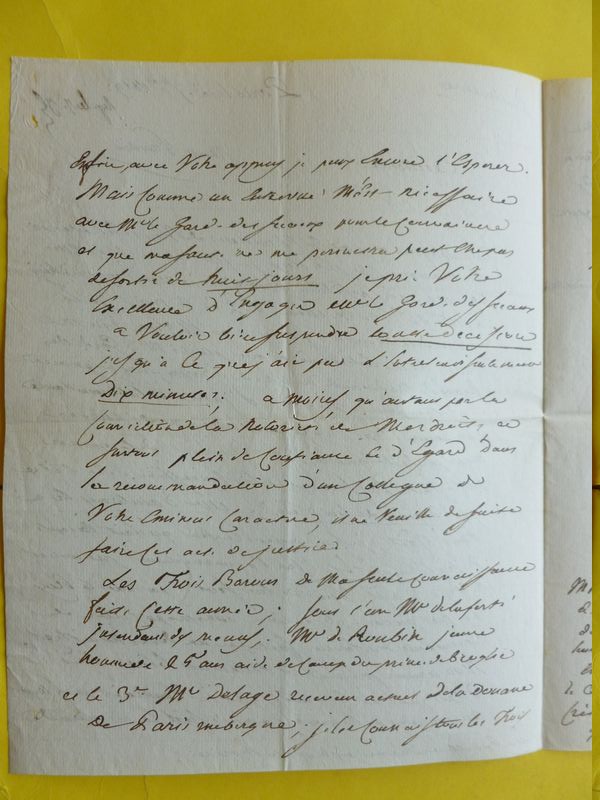 Enfin, avec Votre appuy je peux Encore l'Esperer.
Mais Comme un Entrevue m'est necessaire
avec Mr le Garde des Sceaux pour le Convaincre
et que ma santé ne me permettra peut Etre pas
de sortir de huit jours je prie Votre
Excellence d'Engager Mr le Garde des Sceaux
a Vouloir bien suspendre toute decision
jusqu'à ce que j'aie pu l' seulement
Dix minutes. a moins qu' par la
Conviction de la de Mes droits, et
surtout plein de Confiance et d'Egard dans
la recommandation d'un Collegue de
Votre Eminent Caractere, il ne Veuille de suite
faire cet acte de justice.
Les Trois Barons de Ma seule Connaissance
faits Cette année, sont l'un Mr de laferté
jntendant des menus, Mr de Roubin jeune
homme de 25 ans aide de Camp du prince de Broglie
et le 3me Mr Delage receveur actuel de la douane
de Paris ; je les Connais tous les Trois